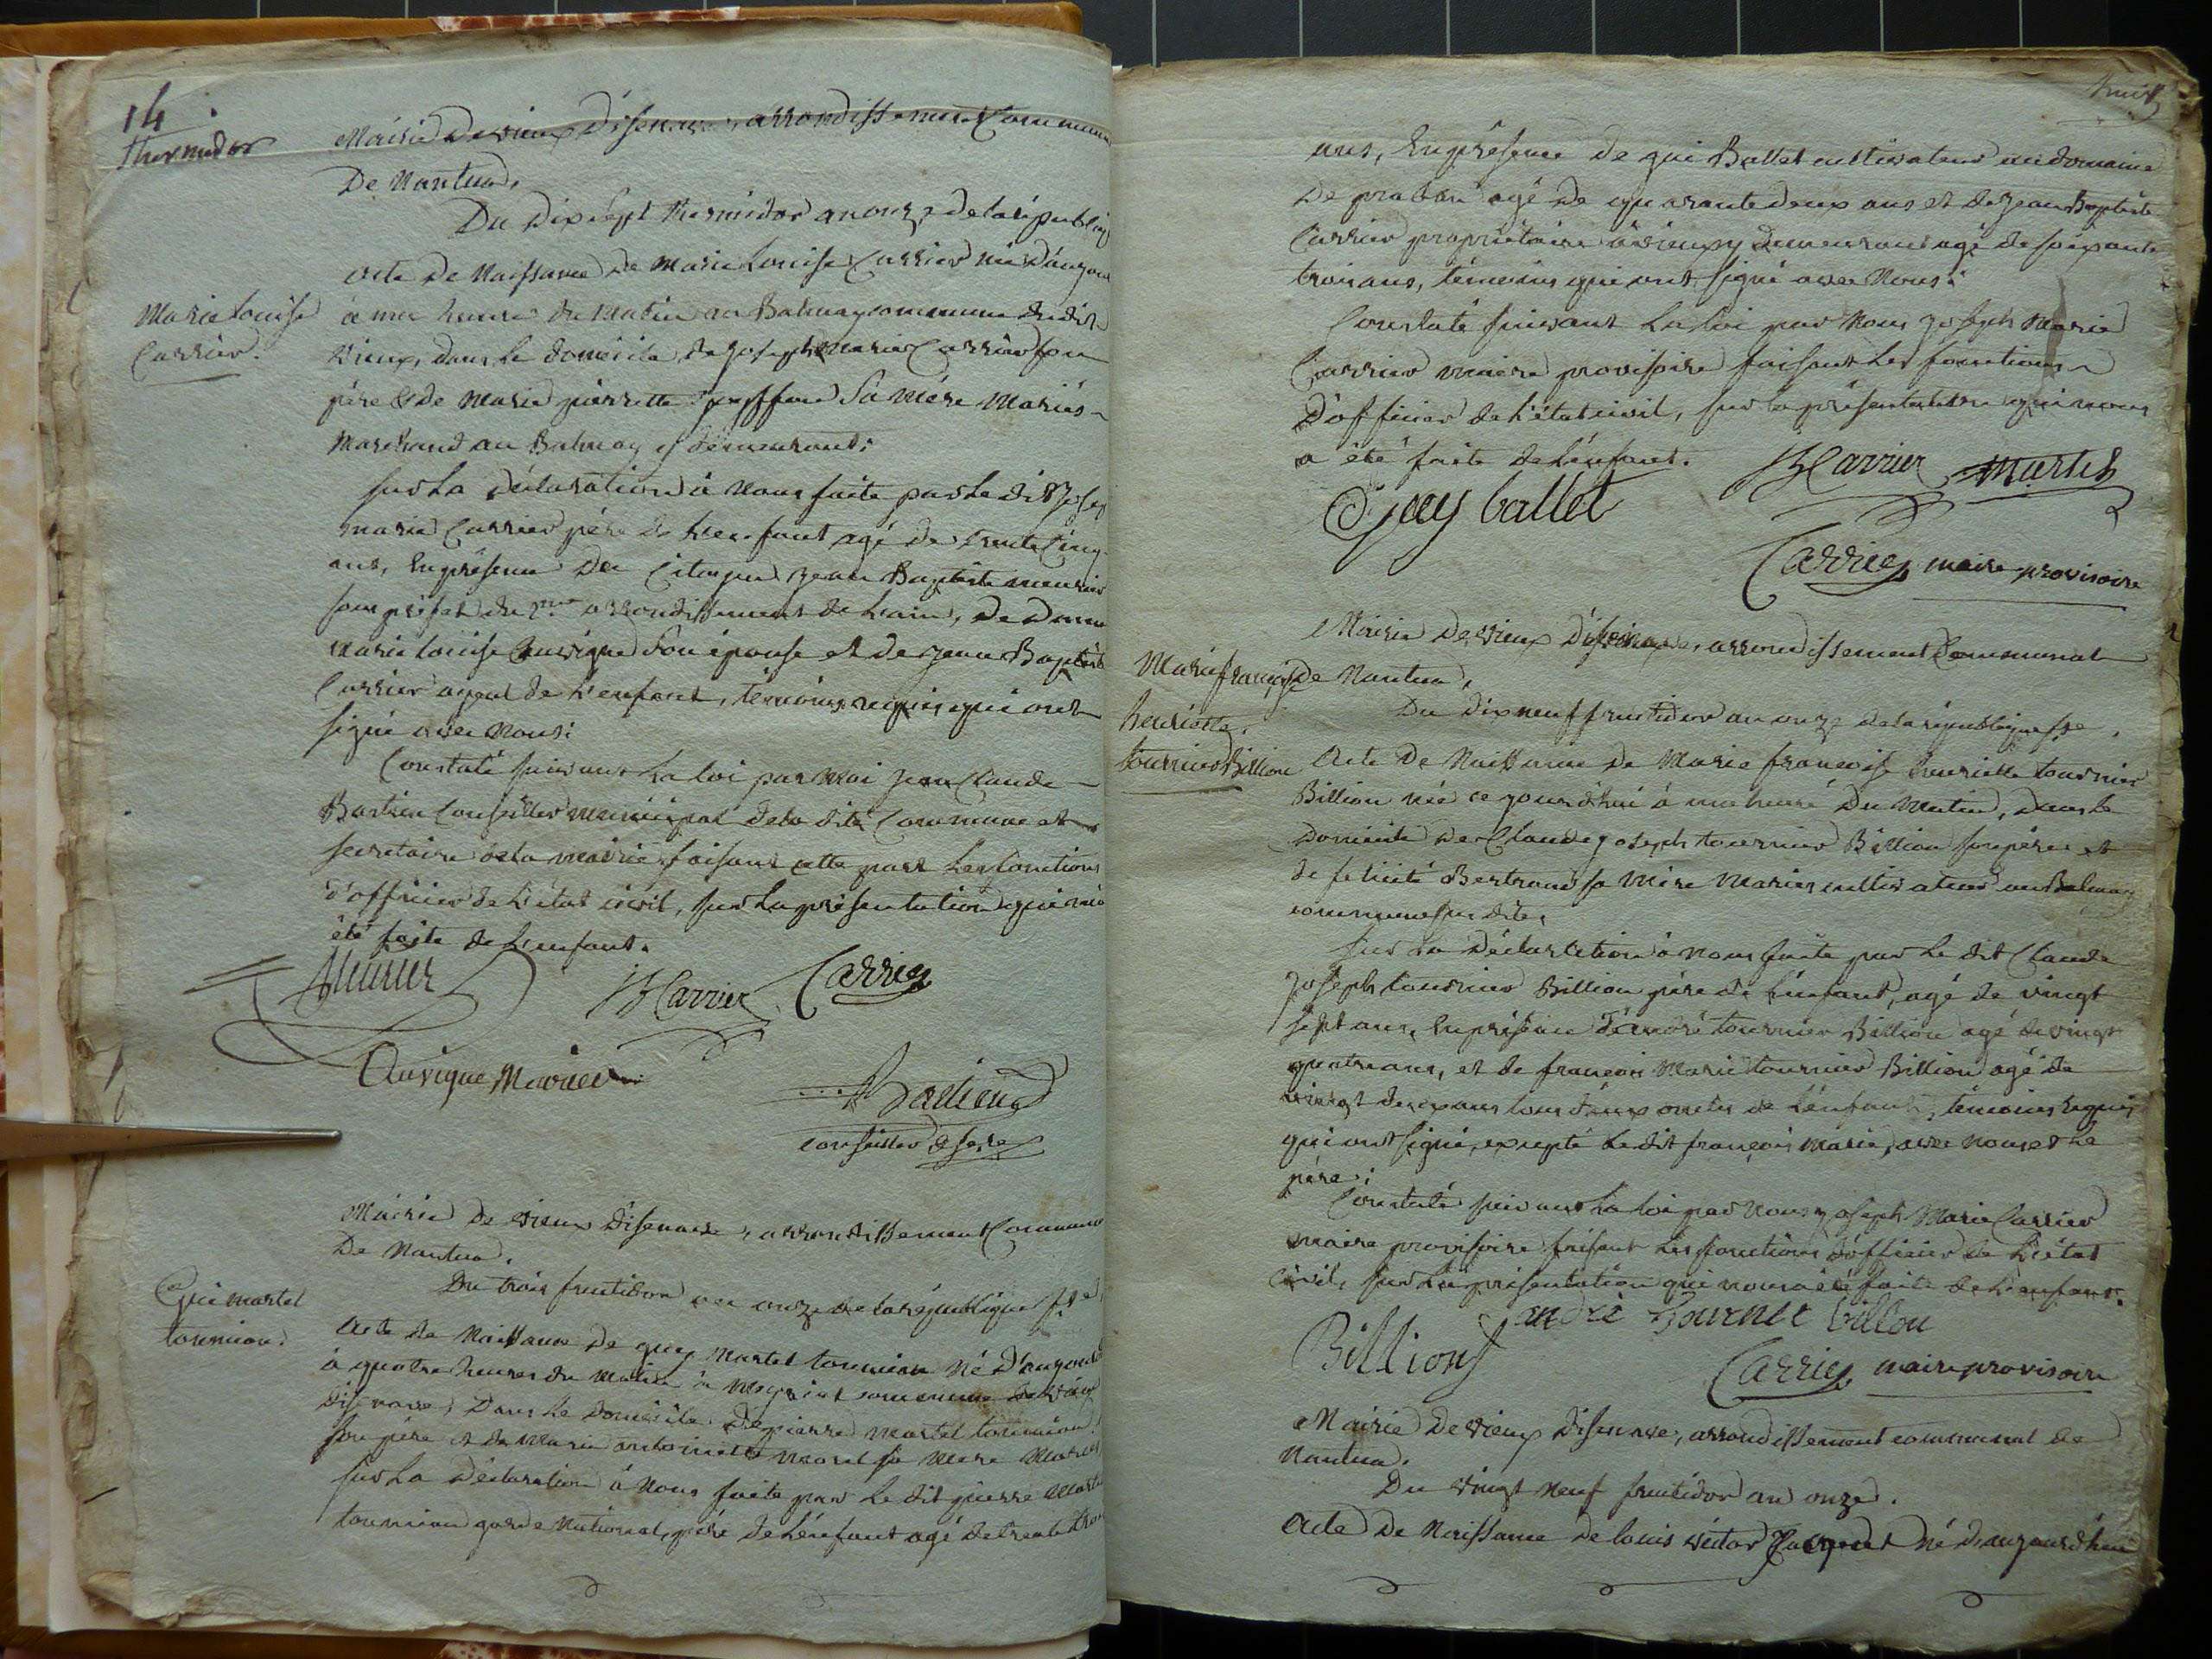 14
thermidor
Mairie de vieux d'isenave, arrondissement Commun
De Nantua.
Du dix sept thermidor an onze de la républiq
acte de Naissance de Marie Louise Carrier née d'aujour
Marie louise
Carrier.
à une heure du matin au Balmay commune du dit
vieux, dans le domicile de joseph marie Carrier son
père & de Marie pierrette sa mére Mariés
Marchand au Balmay y demeurant;
sur la déclaration à nous faite par le dit Josep
marie Carrier pére de l'enfant agé de trente cinq
ans, En présence du Citoyen jean Baptiste meurier
sous préfet du arrondissement de l'ain, de dame
marie louise auvigne son épouse et de jean Baptiste
Carrier ayeul de l'enfant, témoins requis qui ont
signé avec nous;
Constaté suivant la loi par moi jean Claude
Bastien Conseiller municipal de la dite Commune et
secretaire de la mairie faisant cette part les fonctions
d'officier de l'etat civil, sur la présentation qui m'a
été faite de l'enfant.
Meurier JB Carrier Carrier
Auvigne Meurier
Bastien
conseiller & secre
Mairie de vieux d'isenave, arrondissement Commun
De Nantua.
Du trois fructidor an onze de la république fse
Gui martel
tournion.
Acte de Naissance de guy Martel tournion né d'aujourd
à quatre heures du matin à commune de vieux
d'isenave, Dans le domicile de pierre martel tournion
son père et de Marie antoinette morel sa mere Mariés
sur la déclaration à Nous faite par le dit pierre Marte
tournion garde National, père de l'enfant agé de trente troi
huit
ans, En présence de gui Ballet cultivateur au domaine
De agé de quarante deux ans et de jean Baptiste
Carrier propriétaire à vieux y demeurant agé de soixante
trois ans, témoins qui ont signé avec Nous;
Constaté suivant la loi par Nous joseph Marie
Carrier maire provisoire faisant les fonctions
D'officier de l'état civil, sur la présentation qui nous
a été faite de l'enfant.
JB Carrier Martel
Guy ballet
Carrier maire provisoire
Mairie de vieux d'isenave, arrondissement Communal
de Nantua,
Marie françoise
henriette
tournier Billion
Du dix neuf fructidor an onze de la république fse
Acte De Naissance de Marie françoise henriette tournier
Billion née ce jourd'hui à une heure Du Matin, dans le
domicile de Claude joseph tournier Billion son père et
de felicité Bertrand sa mère Mariés cultivateur au Balmay
commune sus dite,
sur la Déclaration à nous faite par le dit Claude
joseph tournier Billion père de l'enfant, agé de vingt
sept ans, En présence d'andré tournier Billion agé de vingt
quatre ans, et de françois Marie tournier Billion agé de
vingt deux ans tous deux oncles de l'enfant, témoins requis
qui ont signé, excepté le dit françois Marie, avec nous et le
père;
Constaté suivant la loi par nous joseph Marie Carrier
maire provisoire faisant les fonctions d'officier de l'état
Civil, sur la présentation qui nous a été faite de l'enfant.
andré Tournié billon
Billion
Carrier maire provisoire
Mairie de vieux d'isenave, arrondissement communal de
Nantua.
Du vingt neuf fructidor an onze.
Acte De Naissance de louis victor né d'aujourd'hui